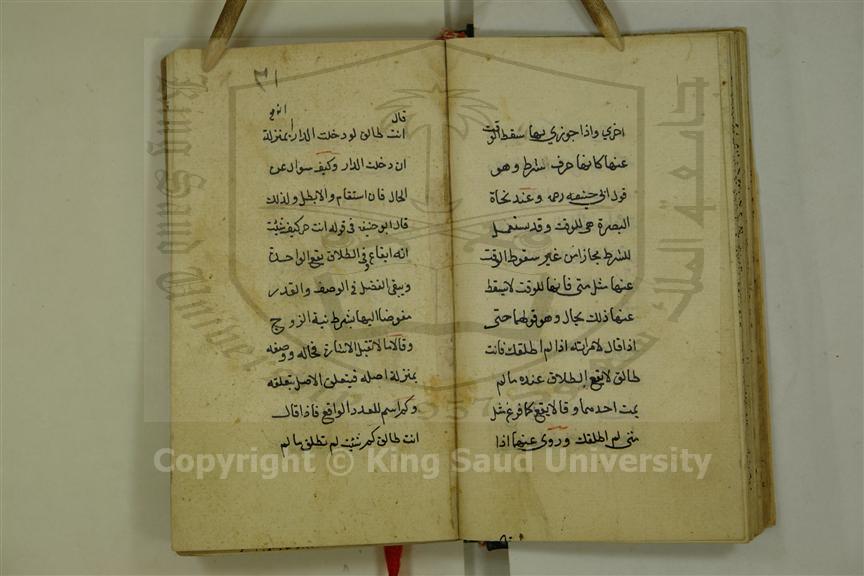 اخري واذا جوزي بها سقط الوقت
عنها كانها حرف شرط وهو
قول ابي حنيفه رحمه وعند نحاة
البصرة هي للوقت وقد يستعمل
للشرط مجازا من غير سقوط الوقت
عنها مثل متي فانها للوقت لايسقط
عنها ذلك بحال وهو قولهما حتى
اذا قال لامراته اذا لم اطلقك فانت
طالق لايقع الطلاق عنده مالم
يمت احدهما وقالا يقع كما فرغ مثل
متى لم اطلقك وروى عنهما اذا
٣١
قال
انت طالق لو دخلت الدار بمنزلة
ان دخلت الدار وكيف سوال عن
الحال فان استقام والا بطل ولذلك
قال ابو حنيفه في قوله انت حر كيف شئت
انه ايقاع وفي الطلاق يقع الواحدة
ويبقى الفضل في الوصف والقدر
مفوضا اليها بشرط نية الزوج
وقالا مالا تقبل الاشارة فحاله ووصفه
بمنزلة اصله فيتعلق الاصل بتعلقه
وكم اسم للعدد الواقع فاذا قال
انت طالق كم شئت لم تطلق مالم
King Saud University
جامعة الملك
1957
Copyright © King Saud University